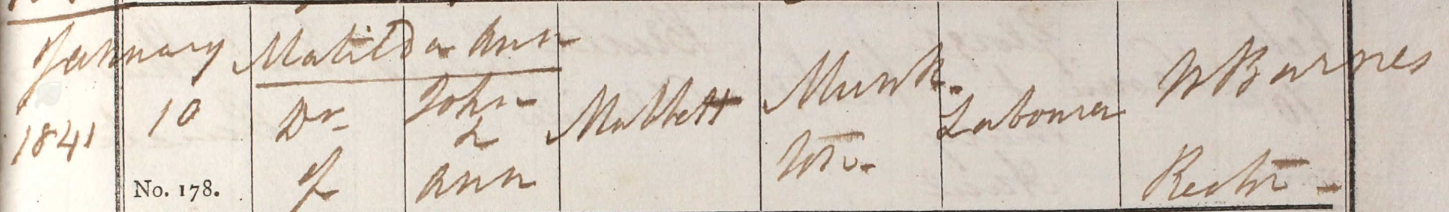 January
1841
10
No. 178.
Matilda Ann
Dr
of
John
&
Ann
Mullett
Labourer
W Barnes
Rector